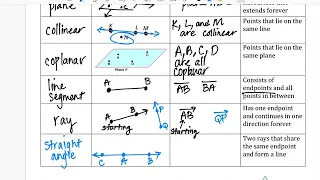 plane
extends forever
collinear
K L M
K, L, and M
are collinear
Points that lie on the
same line
coplanar
Plane P
A, B, C, D
are all
coplanar
Points that lie on the
same plane
line
segment
A B
AB BA
Consists of
endpoints and all
points in between
ray
A B
starting
P
Q
AB QP
starting
Has one endpoint
and continues in one
direction forever
straight
angle
C A B
Two rays that share
the same endpoint
and form a line